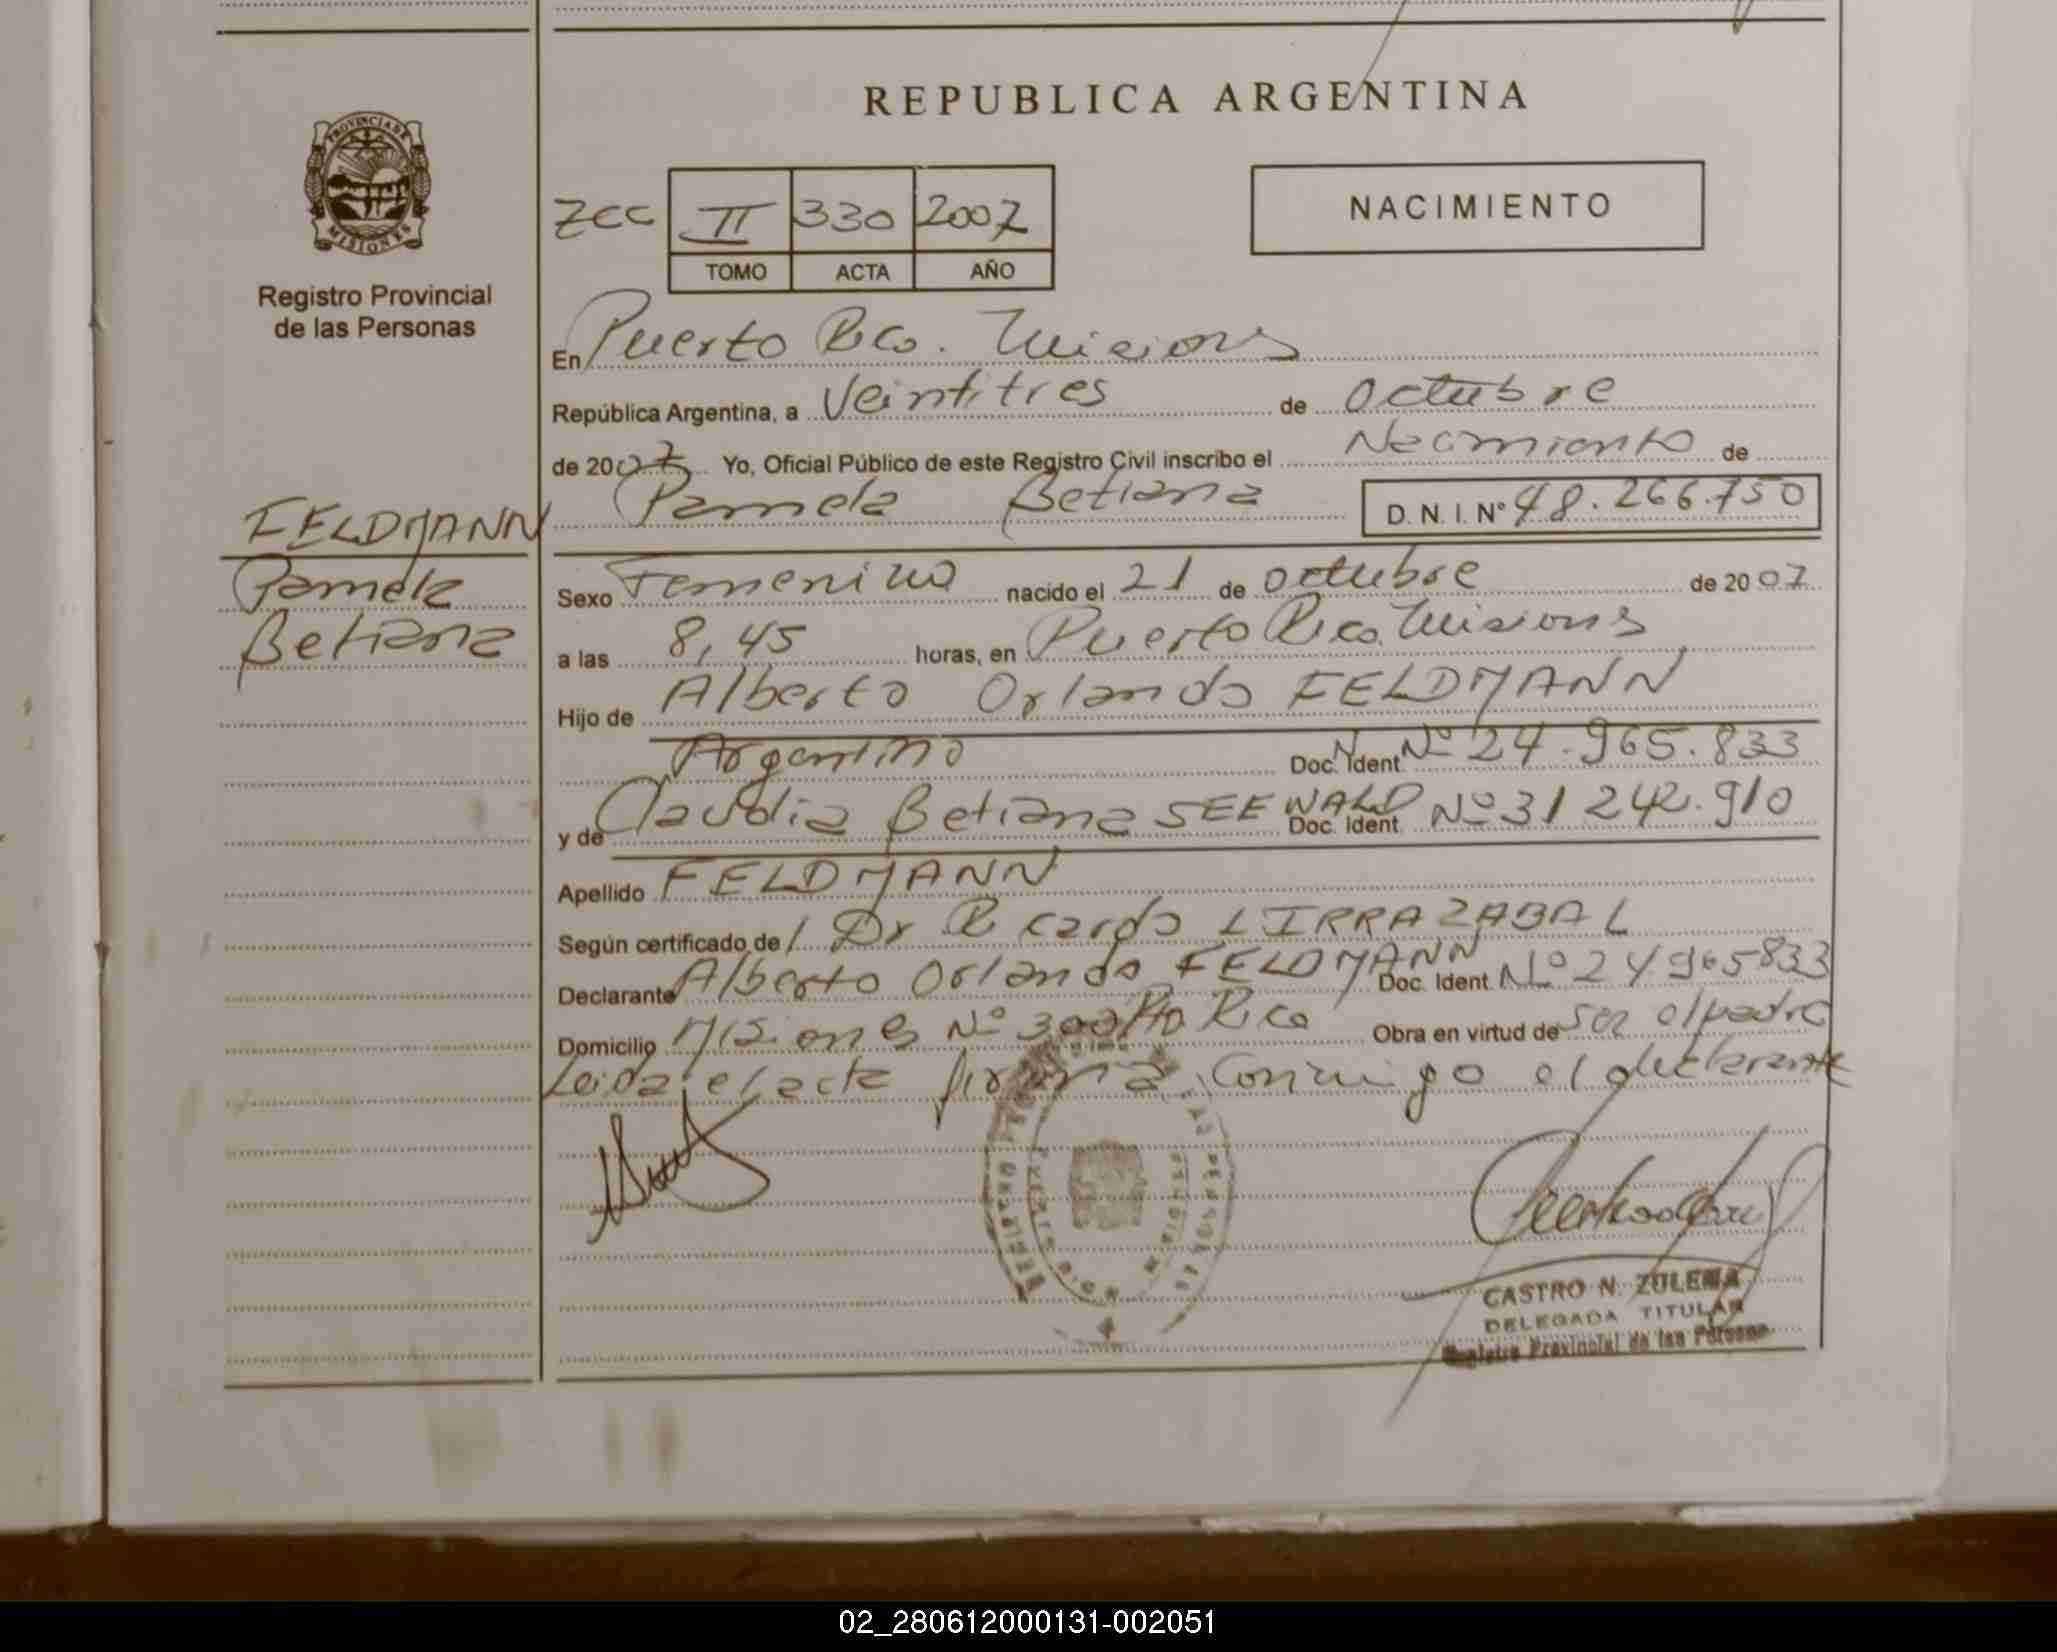 REPUBLICA ARGENTINA
PROVINCIA DE
MISIONES
Registro Provincial
de las Personas
ZCC II 330 2007
TOMO ACTA AÑO
NACIMIENTO
En Puerto Rico. Misiones
República Argentina, a Veintitres de octubre
de 2007 Yo, Oficial Público de este Registro Civil inscribo el Nacimiento de
Pamela Betiana D. N. I. Nº 48.266.750
FELDMANN
Pamela
Betiana
Sexo Femenino nacido el 21 de octubre de 2007
a las 8,45 horas, en Puerto Rico. Misiones
Hijo de Alberto Orlando FELDMANN
Argentino Doc. Ident. Nº 24.965.833
y de Claudia Betiana SEEWALD Doc. Ident. Nº 31 242.910
Apellido FELDMANN
Según certificado de Dr Ricardo LIRRAZABAL
Declarante Alberto Orlando FELDMANN Doc. Ident. Nº 24965833
Domicilio Misiones Nº 300 Pto Rico Obra en virtud de ser el padre
Leida el acta firma conmigo el declarante
CASTRO N. ZULEMA
DELEGADA TITULAR
Registro Provincial de las Personas
02_280612000131-002051